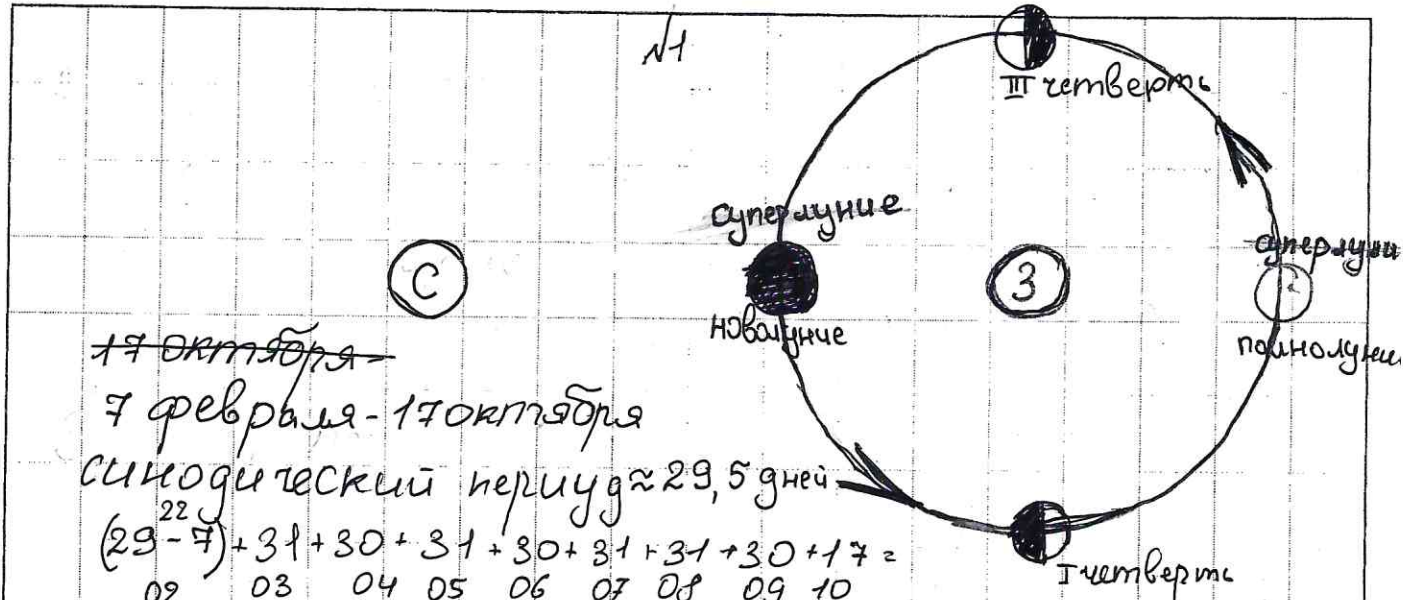 √1
III четверть
суперлуние
суперлуни
С
З
новолуние
полнолуни
17 октября -
7 февраля - 17 октября
синодический периуд ≈ 29,5 дней
22
(29 - 7) + 31 + 30 + 31 + 30 + 31 + 31 + 30 + 17 =
02 03 04 05 06 07 08 09 10
I четверть